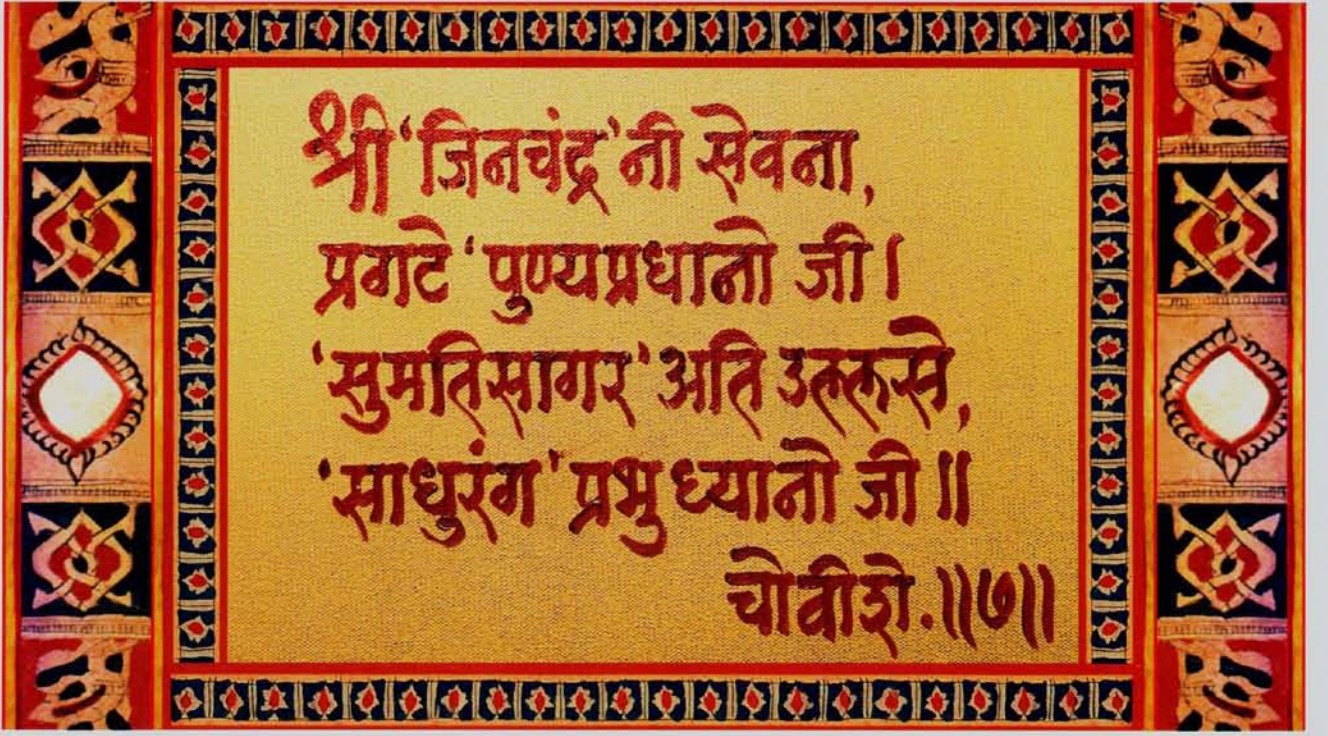 श्री 'जिनचंद्र'नी सेवना,
प्रगटे 'पुण्यप्रधानो जी।
'सुमतिसागर' अति उल्लसे,
'साधुरंग' प्रभु ध्यानो जी॥
चोवीशे.॥७॥